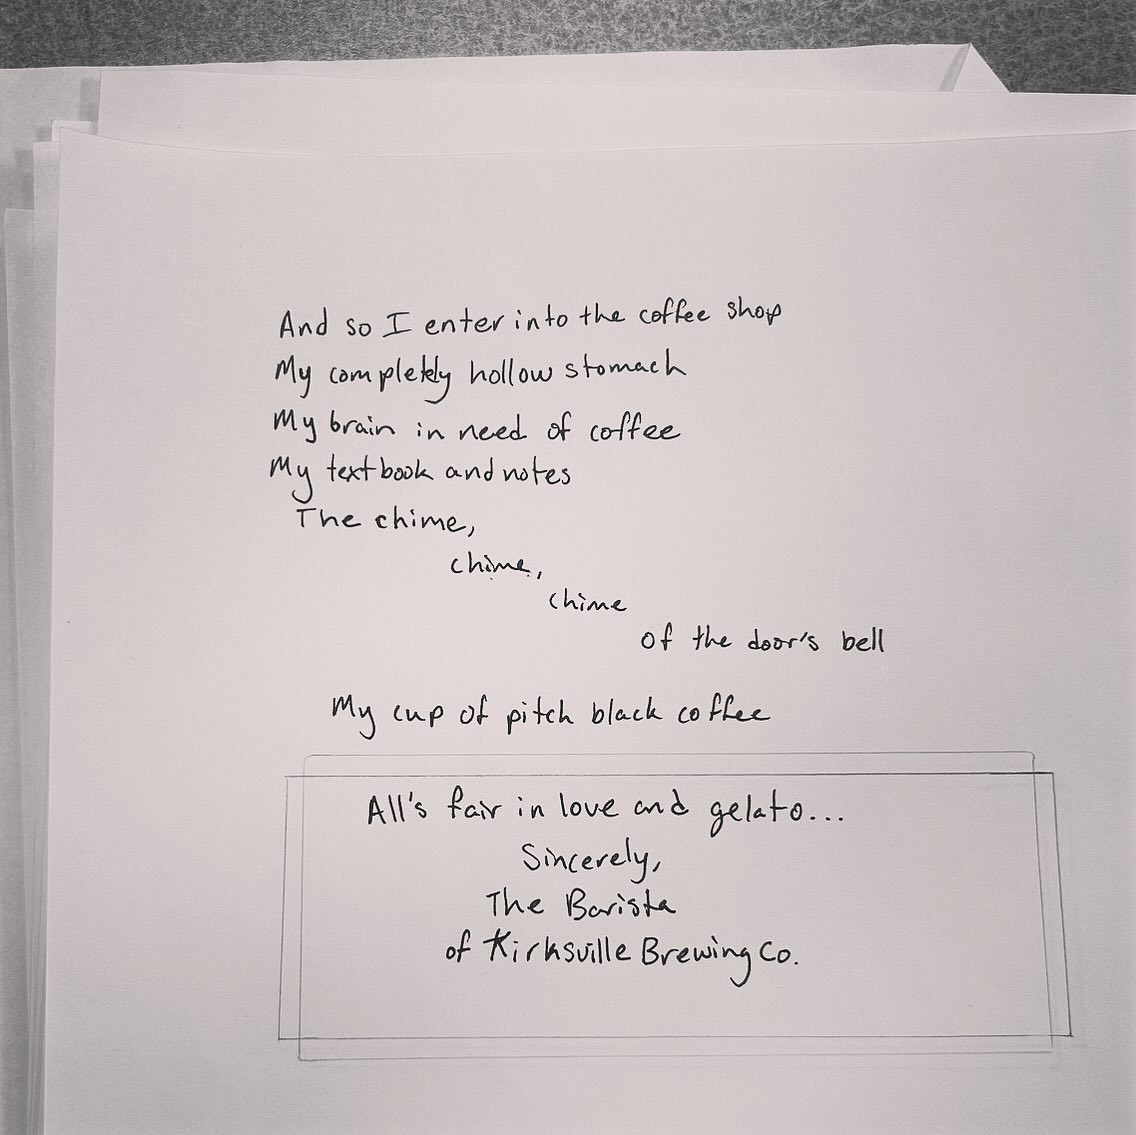 And so I enter into the coffee shop
My completely hollow stomach
My brain in need of coffee
My textbook and notes
The chime,
chime,
chime
of the door's bell
My cup of pitch black coffee
All's fair in love and gelato...
Sincerely,
The Barista
of Kirksville Brewing Co.